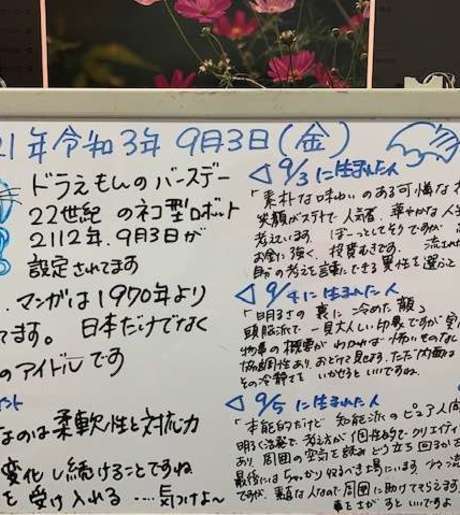 21年令和3年 9月3日(金)
ドラえもんのバースデー
22世紀のネコ型ロボット
2112年.9月3日が
設定されてます
マンガは1970年より
てます。日本だけでなく
のアイドルです
イント
なのは柔軟性と対応力
変化し続けることですね
を受け入れる‥‥気つけよ〜
9/3に生まれた人
「素朴な味わいのある可憐な
笑顔がステキで人気者.華やかな人
考えています.ぼーっとしてそうですが
お金に強く、投資むきです.
自分の考えを言葉にできる男性を選ぶと
9/4に生まれた人
「明るさの裏に冷めた顔」
頭脳派で一見大人しい印象ですが
物事の概要がわかれば怖いものなし
協調性あり.おどけて見せます.ただ内面は
その冷静さをいかせるといいですね.
9/5に生まれた人
「本能的だけど知能派のピュア人間
明るく活発で、考え方が個性的でクリエイティ
あり周囲の空気を読みどう立ち回るか
最後にはちゃっかり
ですが、素直な人なので周囲に助けてもらえます
といいですよ